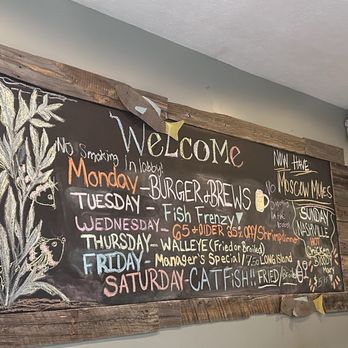 Welcome
No Smoking
In lobby!
Monday - BURGER & BREWS
TUESDAY - Fish Frenzy
WEDNESDAY - 65 & OlDER 25% OFF Shrimp Dinner
THURSDAY - WALLEYE (Fried or Broiled)
FRIDAY - Manager's Special / LONG ISland
SATURDAY - CATFISH!! FRIED/
NOW HAVE
MOSCOW MULES
SUNDAY
NASHVILLE
HOT
Chicken
BLOODY
Mary